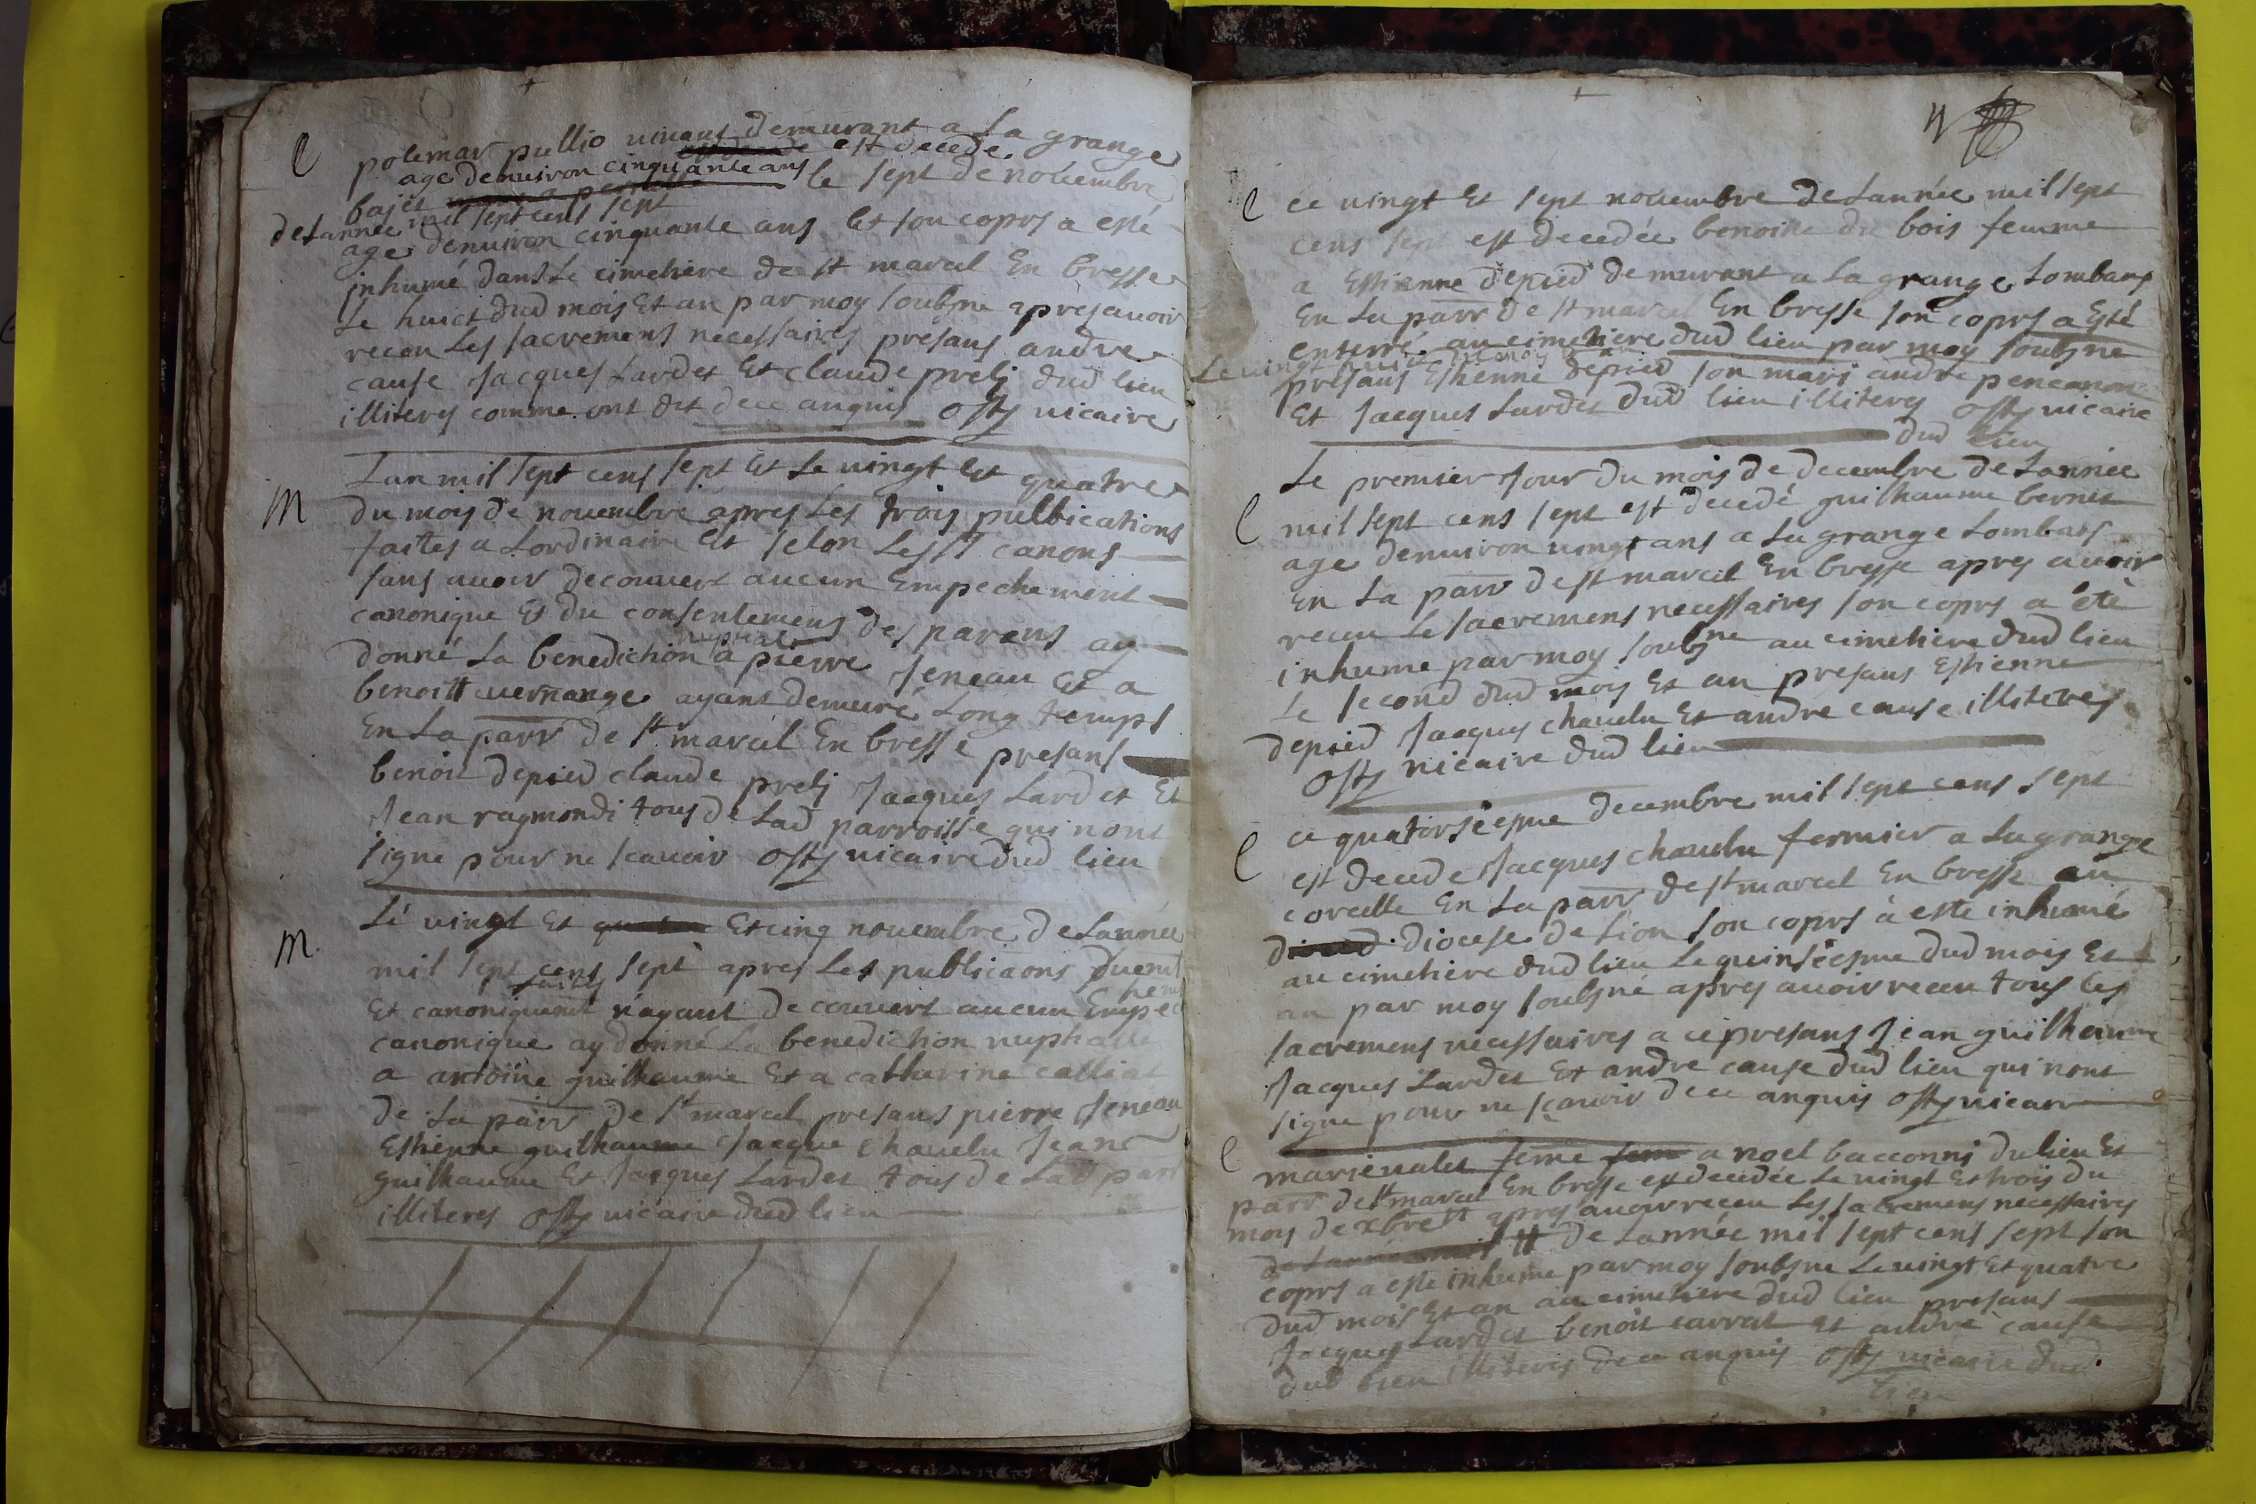 e
polemar pullio vivant demurant a La grange
est decede
age denuiron cinquante ans
bajet le sept de nouembre
de Lannée mil sept cens sept
age denuiron cinquante ans Et son coprs a esté
inhumé dans Le cimetiere de st marcel En bresse
Le huict dud mois Et an par moy soubsne apres auoir
receu Les sacremens necessaires presans andre
cause Jacques Lardet Et claude prelj dud lieu
illiteres comme ont dit de ce anquis Osty uicaire
M
Lan mil sept cens sept Et Le uingt Et quatre
du mois de nouembre apres Les trois pulbications
faites a Lordinaire Et selon Les st canons
sans auoir decouuert aucun Empechement
canonique Et du consentement des parens ay
nuptiale
donné La benediction a pierre Jeneau Et a
benoitt uernange ayant demeuré Long temps
En La parr de st marcel En bresse presans
benoit depied claude prelj Jacques Lardet Et
Jean raymondi tous de Lad parroisse qui nont
signe pour ne scauoir Osty uicaire dud lieu
M.
Lé uingt Et Et cinq nouembre de Lannée
mil sept cens sept apres Les publicaons Duemt
faites
Et canoniquemt n'ayant decouuert aucun Empec
hemt
canonique ay donné La benediction nuptialle
a antoine guilhaume Et a catharine calliat
de La parr de st marcel presans pierre Jeneau
Esthienne guilhaume Jacque chauelu Jean
guilhaume Et Jacques Lardet tous de Lad parr
illiteres Osty uicaire dud lieu
e
ce uingt Et sept nouembre de Lannée mil sept
cens sept est decedée benoitte du bois femme
a Esthienne depied demurant a La grange Lombard
En La parr de st marcel En bresse son coprs a Esté
enterré au cimetiere dud lieu par moy soubsne
Le uingt
presans Esthienne depied son mari andre
Et Jacques Lardet dud lieu illiteres Osty uicaire
dud lieu
e
Le premier Jour du mois de decembre de Lannée
mil sept cens sept est decedé guilhaume bernet
age denuiron uingt ans a La grange Lombard
En La parr de st marcel En bresse apres auoir
receu Le sacremens necessaires son coprs a été
inhume par moy soubsne au cimetiere dud lieu
Le second dud mois Et an presans Esthienne
depied Jacques chauelu Et andre cause illiteres
Osty uicaire dud lieu
e
ce quatorsiesme decembre mil sept cens sept
est decede Jacques chauelu fermier a La grange
corcelle En La parr de st marcel En bresse au
diocese de Lion son coprs à este inhumé
au cimetiere dud lieu Le quinsiesme dud mois Et
an par moy soubsne apres auoir receu tous les
sacremens necessaires a ce presans Jean guilhaume
Jacques Lardet Et andre cause dud lieu qui nont
signe pour ne scauoir de ce anquis Osty uicair
e
marie ualet feme a noel bacconni du lieu Et
parr de st marcel En bresse est decedée Le uingt Et trois du
mois de xbre apres auoir receu Les sacremens necessaires
de Lannée mil sept cens sept son
coprs a este inhume par moy soubsne Le uingt Et quatre
dud mois Et an au cimetiere dud lieu presans
Jacques Lardet benoit carrat Et andre cause
dud lieu illiteres de ce anquis Osty uicaire dud
lieu